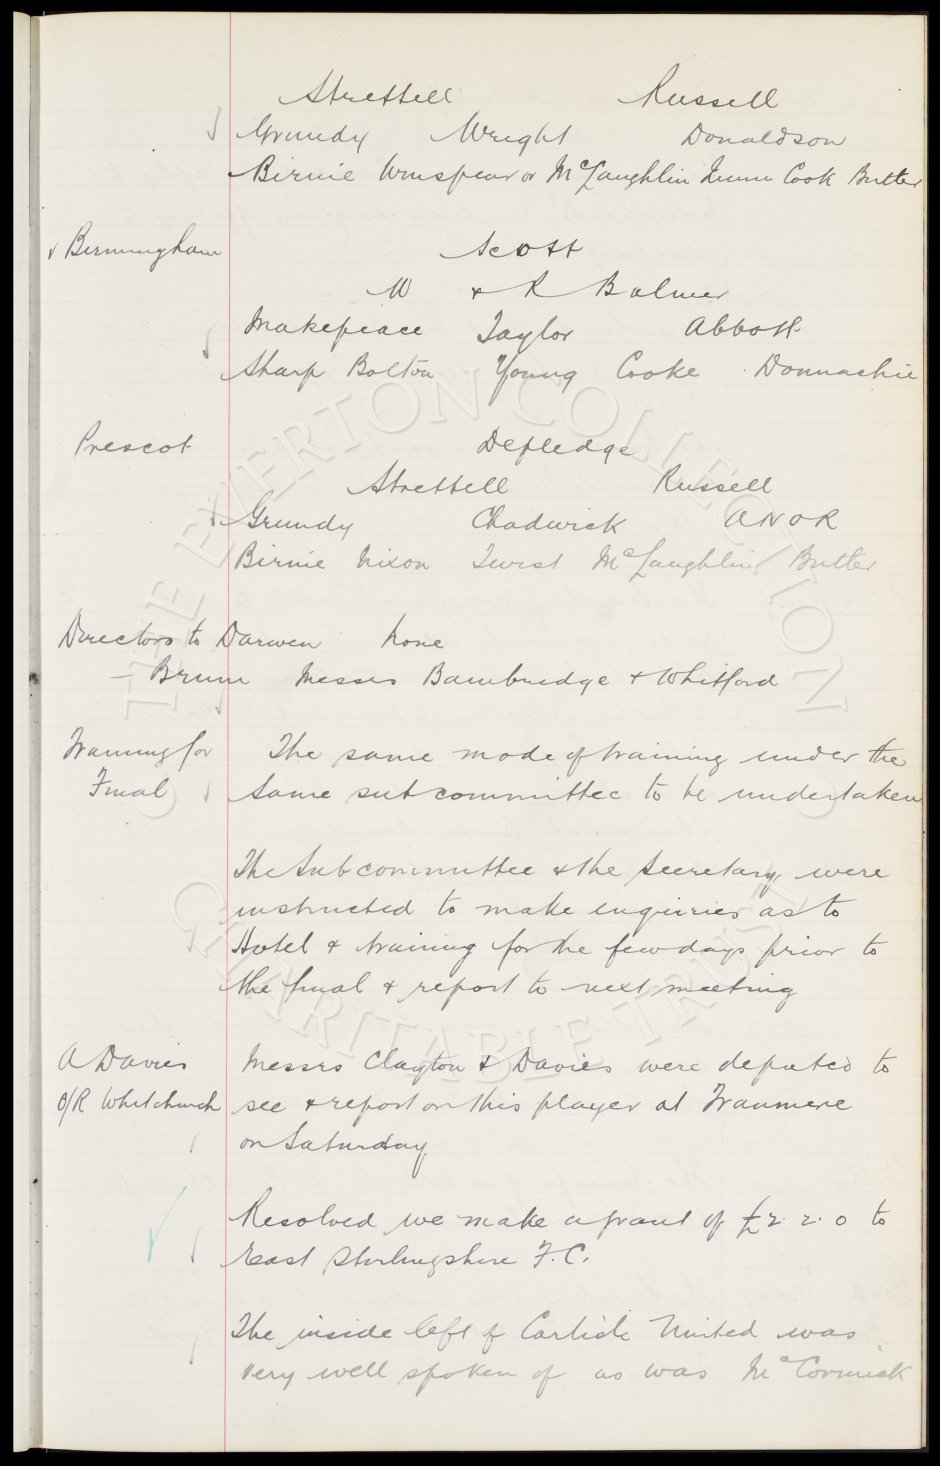 Strettell Russell
Grundy Wright Donaldson
Birnie Winspear or McLaughlin Quinn Cook Butler
Birmingham Scott
W & R Balmer
Makepeace Taylor Abbott
Sharp Bolton Young Cooke Donnachie
Prescot Depledge
Strettell Russell
Grundy Chadwick A N O R
Birnie Nixon Twist McLaughlin Butler
Directors to Darwen None
— Brum Messrs Bainbridge & Whitford
Training for The same mode of training under the
Final same sub committee to be undertaken
The Sub committee & the Secretary were
instructed to make enquiries as to
Hotel & training for the few days prior to
the final & report to next meeting
A Davies Messrs Clayton & Davies were deputed to
O/R Whitchurch see & report on this player at Tranmere
on Saturday
Resolved we make a grant of £2. 2. 0 to
East Stirlingshire F.C.
The inside left of Carlisle United was
very well spoken of as was McCormick
THE EVERTON COLLECTION
CHARITABLE TRUST